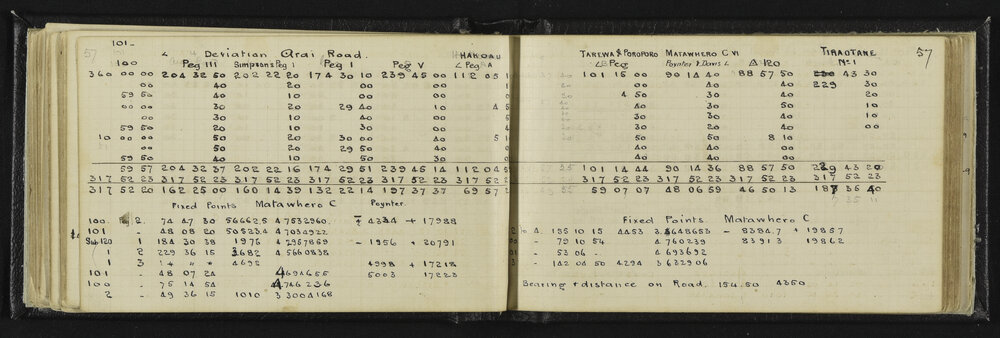 57
101-
∠ Deviation Arai Road.
HAKOAU
100
Peg III
Simpsons Peg I
Peg I
Peg V
∠ Peg A
360 00 00 204 32 50 202 22 20 174 30 10 239 45 00 112 05 1
00 40 20 00 00
59 50 40 00 00 00
00 00 30 20 29 40 10 4 5
00 30 10 40 00
59 50 20 10 30 00 4
10 00 00 50 20 30 00 40 5 1
00 50 20 29 50 40
59 50 40 10 50 30
59 57 204 32 37 202 22 16 174 29 51 239 45 14 112 04 5
317 52 23 317 52 23 317 52 23 317 52 23 317 52 23 317 52
317 52 20 162 25 00 160 14 39 132 22 14 197 37 37 69 57
Fixed Points Matawhero C Poynter.
100. 2. 74 47 30 56662.5 4 7532960. 4334 + 17988
101 - 48 08 20 50523.4 4 7034922
Sub 120 1 184 30 38 1975 4 2957869 - 1956 + 20791
1 2 229 36 15 3682 4 5660838
1 3 1" " " 4692 4998 + 17218
101 - 48 07 24 4694655 5003 17223
100 - 75 14 54 4746236
2 - 49 36 15 1010 3 3004168
TAREWA & POROPORO MATAWHERO C VI
TIRAOTANE
57
∠ Peg
Poynter & Davis ∠
Δ 120
No 1
101 15 00 90 14 40 88 57 50 230 43 30
00 40 00 229 30
4 50 30 40 20
40 30 50 10
30 30 40 10
30 20 40 00
50 50 8 10
50 40 00
40 40 00
55 101 14 44 90 14 36 88 57 50 229 43 20
317 52 23 317 52 23 317 52 23 317 52 23
55 59 07 07 48 06 59 46 50 13 187 35 40
7 35 11
Fixed Points. Matawhero C
to A. 135 10 15 4453 3.8648653 - 8384.7 + 19857
- 79 10 54 4 760239 83913 19862
- 53 06 - 4 693692
- 142 04 50 4294 3 632906
Bearing + distance on Road. 154.50 4350